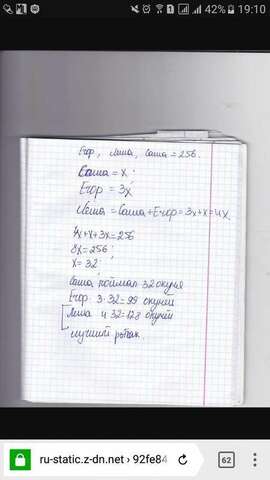 42% 19:10
Егор, Леша, Саша = 256.
Саша = x
Егор = 3x
Леша = Саша + Егор = 3x+x = 4x.
4x+x+3x=256
8x=256
x=32
Саша поймал 32 окуня
Егор 3·32=99 окуней
Леша 4·32=128 окуней
лучший рыбак.
ru-static.z-dn.net › 92fe84
62